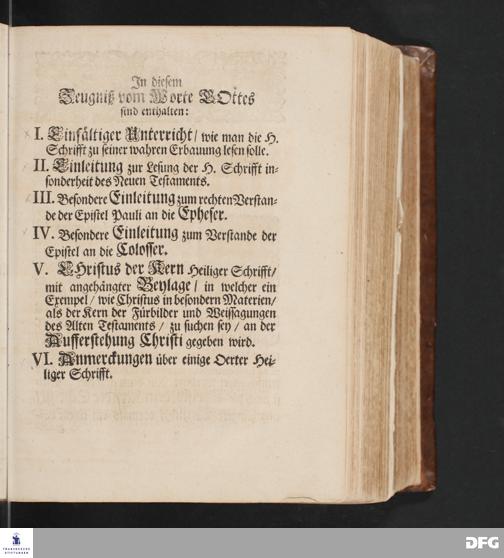 In diesem
Zeugniß vom Worte GOttes
sind enthalten:
I. Einfältiger Unterricht/ wie man die H.
Schrifft zu seiner wahren Erbauung lesen solle.
II. Einleitung zur Lesung der H. Schrifft in-
sonderheit des Neuen Testaments.
III. Besondere Einleitung zum rechten Verstan-
de der Epistel Pauli an die Epheser.
IV. Besondere Einleitung zum Verstande der
Epistel an die Colosser.
V. CHristus der Kern Heiliger Schrifft/
mit angehängter Beylage/ in welcher ein
Exempel/ wie Christus in besondern Materien/
als der Kern der Fürbilder und Weissagungen
des Alten Testaments/ zu suchen sey/ an der
Aufferstehung Christi gegeben wird.
VI. Anmerckungen über einige Oerter Hei-
liger Schrifft.
FRANCKESCHE
STIFTUNGEN
DFG